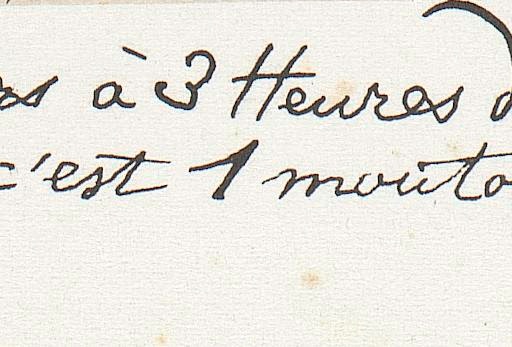 rs à 3 Heures d
c'est 1 mouto